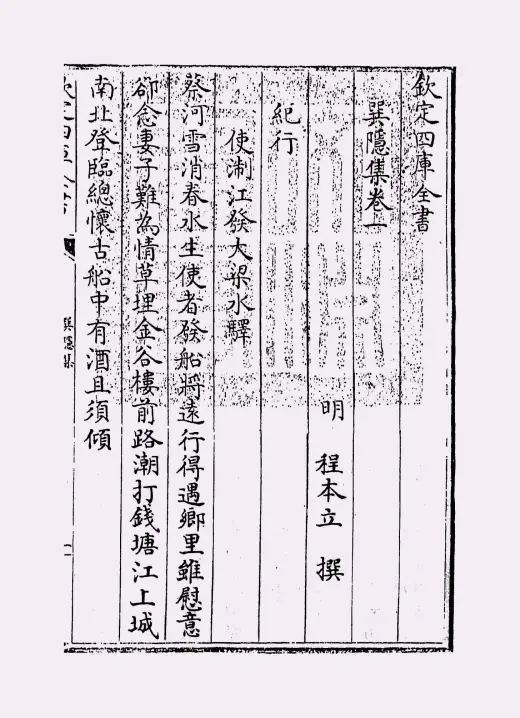 欽定四庫全書
巽隱集卷一
明 程本立 撰
紀行
使浙江發大梁水驛
蔡河雪消春水生使者發船將遠行得遇鄉里雖慰意
卻念妻子難為情草埋金谷樓前路潮打錢塘江上城
南北登臨總懷古船中有酒且須傾
欽定四庫全書
巽隱集
一